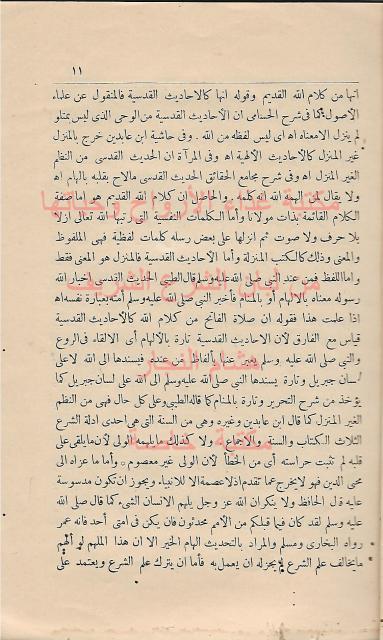 ١١
انها من كلام الله القديم وقوله انها كالاحاديث القدسية فالمنقول عن علماء
الاصول كما فى شرح الحسامى ان الاحاديث القدسية من الوحى الذى ليس بمتلو
لم ينزل الا معناه اه اى ليس لفظه من الله . وفى حاشية ابن عابدين خرج بالمنزل
غير المنزل كالاحاديث الالهية اه وفى المرآة ان الحديث القدسى من النظم
الغير المنزل اه وفى شرح مجامع الحقائق الحديث القدسى مالاح بقلبه بالهام اه
ولا يقال لمن الهمه الله انه كلمه . والحاصل ان كلام الله القديم هو اما صفة
الكلام القائمة بذات مولانا وأما الكلمات النفسية التى رتبها الله تعالى ازلا
بلا حرف ولا صوت ثم انزلها على بعض رسله كلمات لفظية فهى الملفوظ
والمعنى وذلك كالكتب المنزلة وأما الاحاديث القدسية فالمنزل هو المعنى فقط
واما اللفظ فمن عند النبى صلى الله عليه وسلم قال الطيبى الحديث القدسى اخبار الله
رسوله معناه بالالهام أو بالمنام فأخبر النبى صلى الله عليه وسلم أمته بعبارة نفسه اه
اذا علمت هذا فقوله ان صلاة الفاتح من كلام الله كالاحاديث القدسية
قياس مع الفارق لأن الاحاديث القدسية تارة بالالهام أى الالقاء فى الروع
والنبى صلى الله عليه وسلم يعبر عنها بألفاظ من عنده فيسندها الى الله لا على
لسان جبريل وتارة يسندها النبى صلى الله عليه وسلم الى الله على لسان جبريل كما
يؤخذ من شرح التحرير وتارة بالمنام كما قاله الطيبى وعلى كل حال فهى من النظم
الغير المنزل كما قال ابن عابدين وغيره وهى من السنة التى هى احدى ادلة الشرع
الثلاث الكتاب والسنة والاجماع . ولا كذلك ما يلهمه الولى لأن ما يلقى على
قلبه لم تثبت حراسته أى من الخطأ لأن الولى غير معصوم . وأما ما عزاه الى
محى الدين فهو لا يخرج عما تقدم اذ لا عصمة الا للانبياء ويجوز ان تكون مدسوسة
عليه قال الحافظ ولا ينكر ان الله عز وجل يلهم الانسان الشىء كما قال صلى الله
عليه وسلم لقد كان فيما قبلكم من الأمم محدثون فان يكن فى امتى أحد فانه عمر
رواه البخارى ومسلم والمراد بالتحديث الهام الخير الا ان هذا الملهم لو ألهم
ما يخالف علم الشرع لم يجز له ان يعمل به فأما ان يترك علم الشرع ويعتمد على